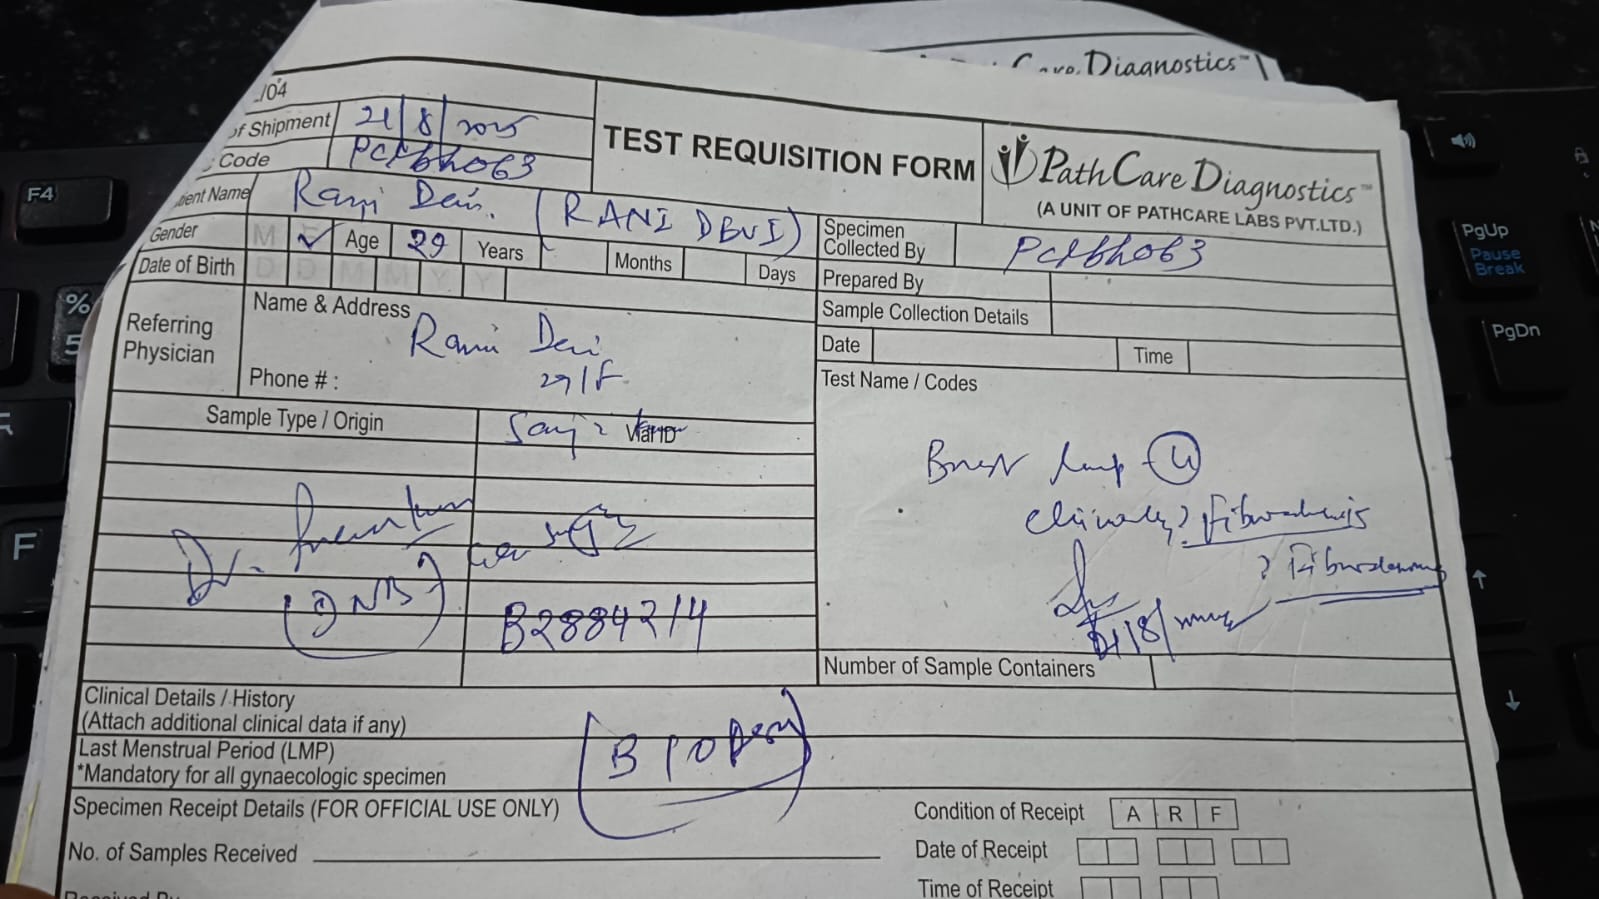 Care Diagnostics™
/04
of Shipment 21/8/2025
Code PCLbh063
TEST REQUISITION FORM
PathCare Diagnostics™
(A UNIT OF PATHCARE LABS PVT.LTD.)
ient Name Rani Devi (RANI DEVI)
Gender M ✓ Age 29 Years Months Days
Date of Birth D D M M Y Y
Specimen
Collected By PCLbh063
Prepared By
Sample Collection Details
Date Time
Referring
Physician
Name & Address
Rani Devi
29/F
Phone # :
Test Name / Codes
Breast lump
Clinically ? Fibroadenosis
? Fibroadenoma
21/8/
Sample Type / Origin
Vial ID
Dr.
(DNB)
B2884214
Number of Sample Containers
Clinical Details / History
(Attach additional clinical data if any)
Last Menstrual Period (LMP)
*Mandatory for all gynaecologic specimen
[Biopsy]
Specimen Receipt Details (FOR OFFICIAL USE ONLY)
No. of Samples Received
Condition of Receipt A R F
Date of Receipt
Time of Receipt
F4
%
5
F
PgUp
Pause
Break
PgDn